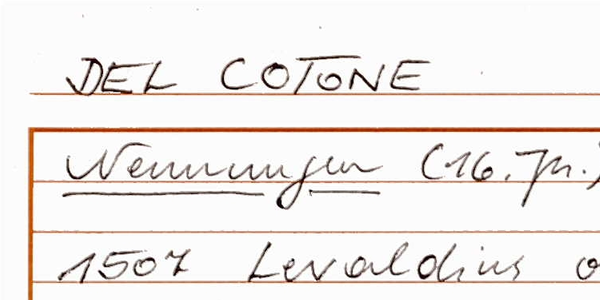 DEL COTONE
Nennungen (16. Jh.)
1507 Levaldius